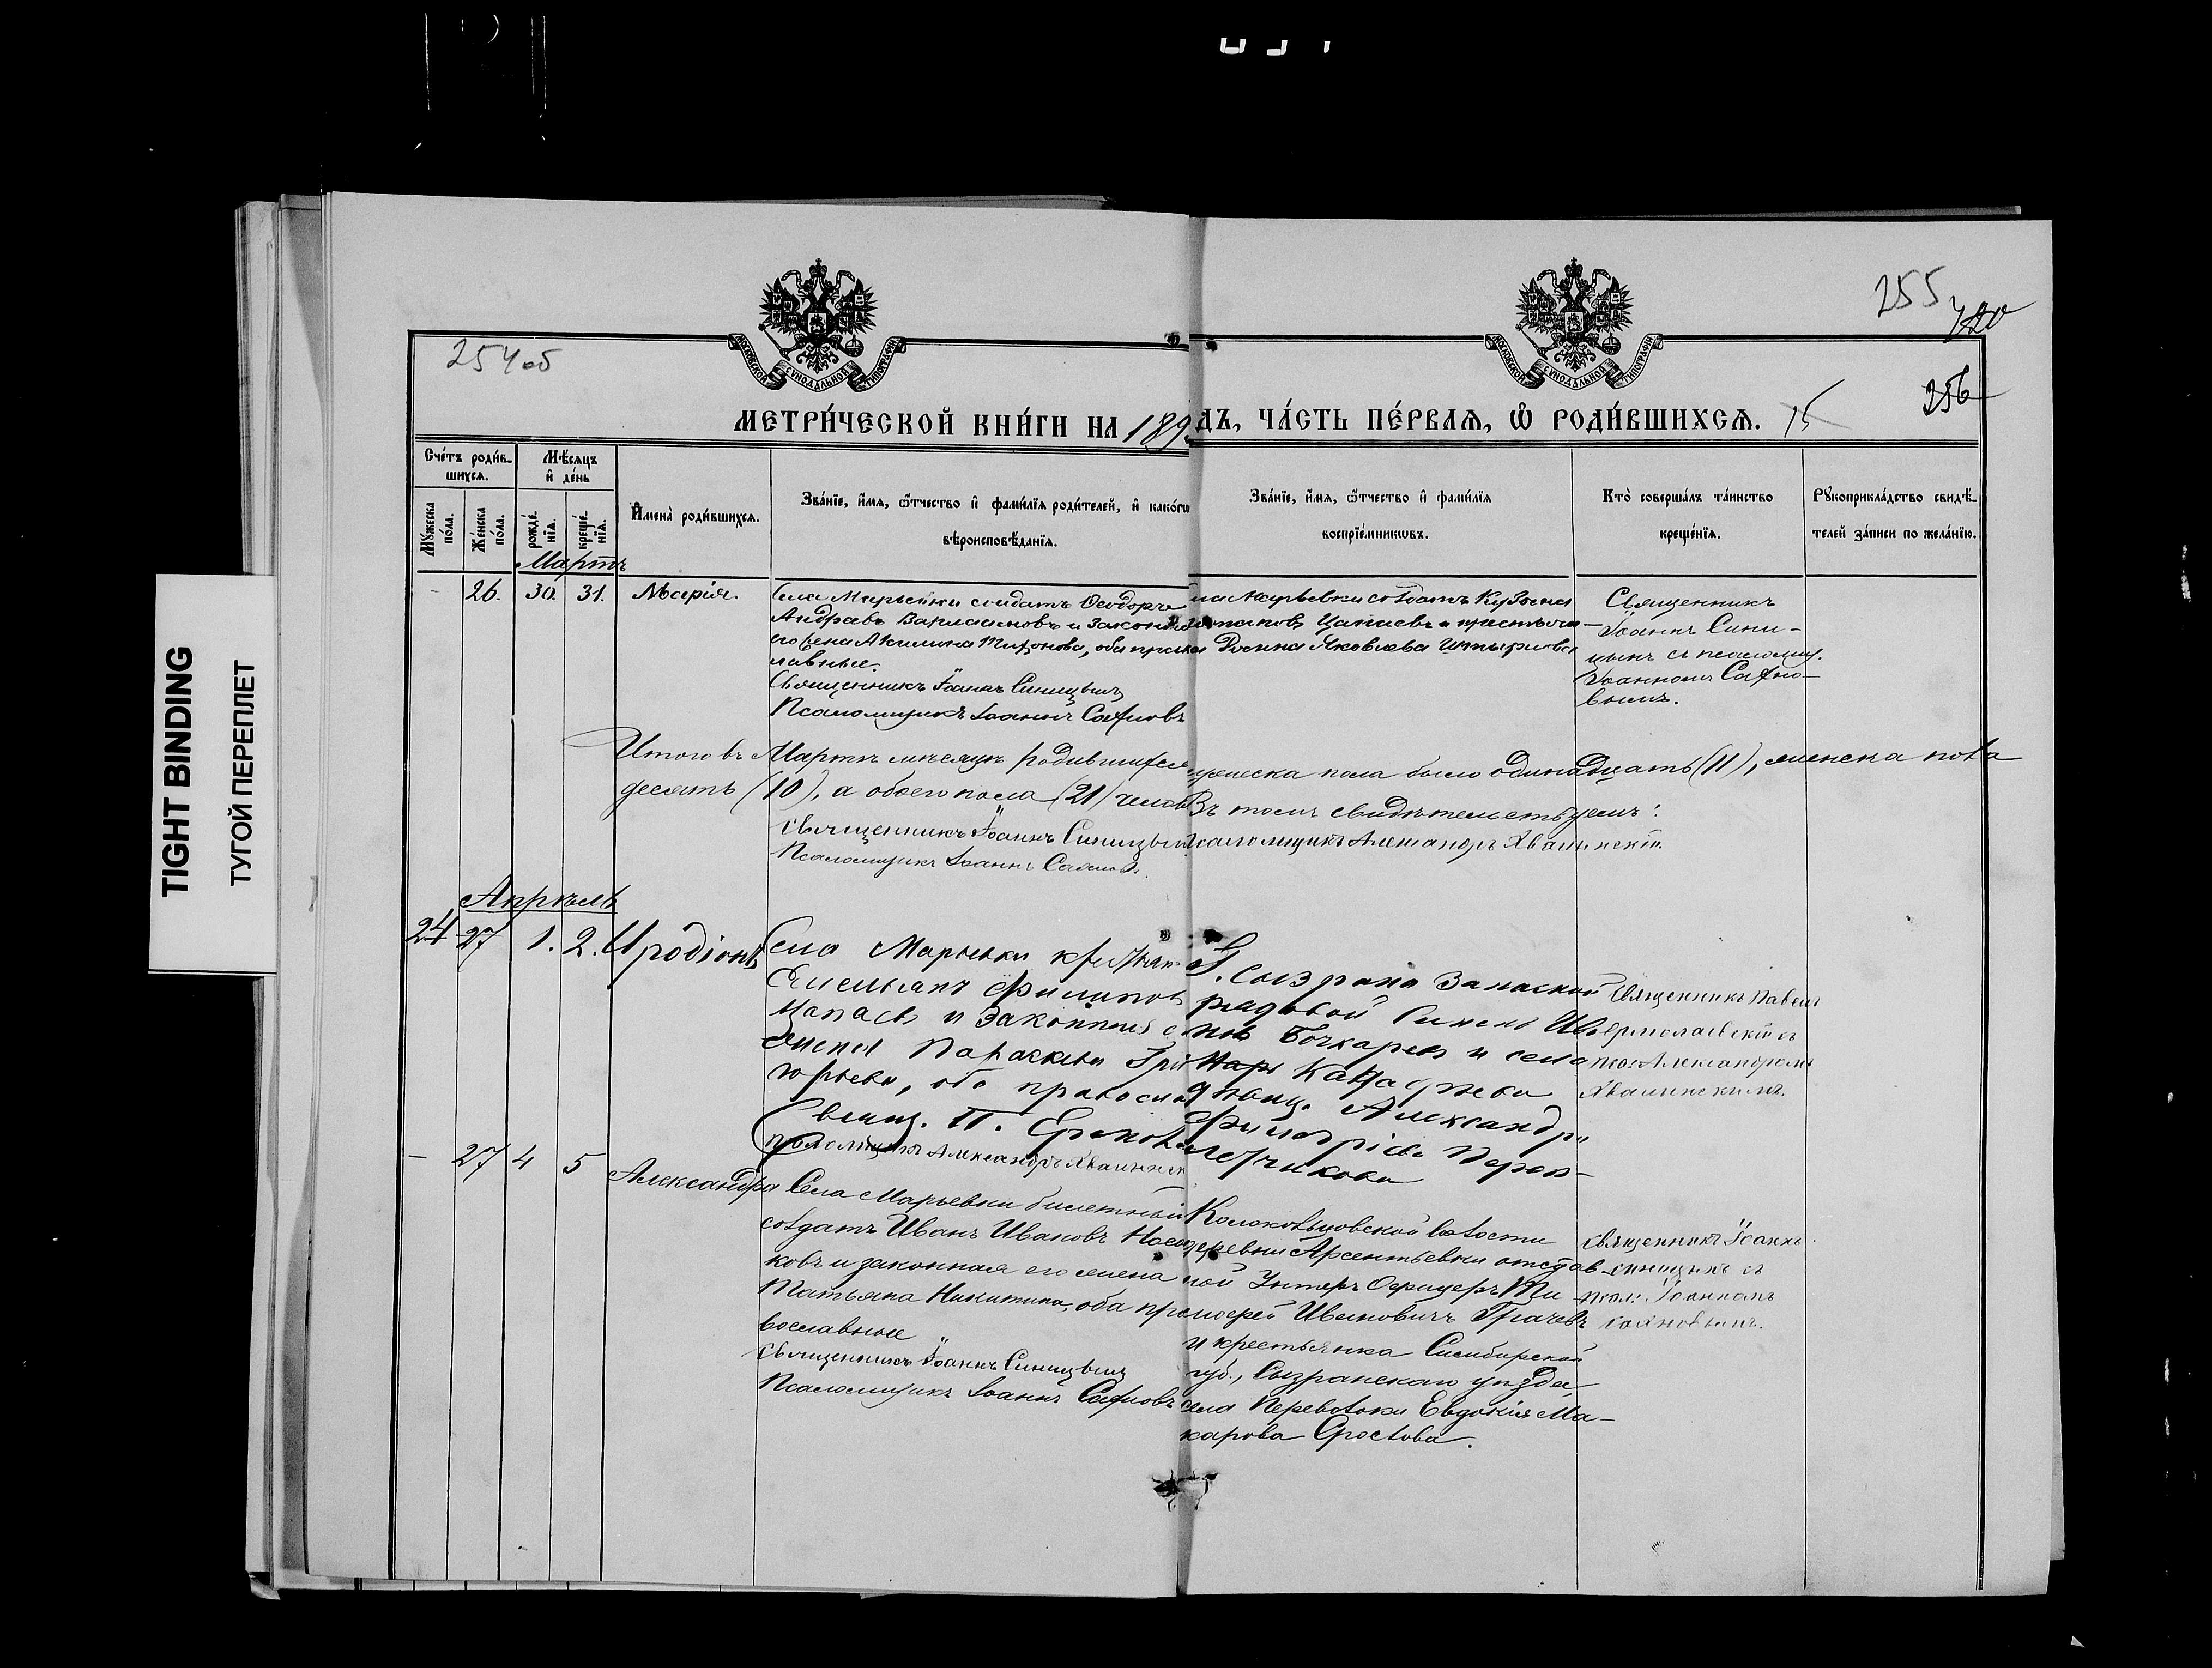 TIGHT BINDING
ТУГОЙ ПЕРЕПЛЕТ
254 об
255
256
15
МОСКОВСКОЙ СУНОДАЛЬНОЙ ТИПОГРАФІИ
МОСКОВСКОЙ СУНОДАЛЬНОЙ ТИПОГРАФІИ
МЕТРИ́ЧЕСКОЙ КНИ́ГИ НА 189
ДЪ, ЧА́СТЬ ПЕ́РВАѦ, Ѡ҆ РОДИ́ВШИХСѦ.
Сче́тъ роди́в-
шихсѧ.
Мꙋ́жеска по́ла.
Же́нска по́ла.
Мѣ́сѧцъ
и҆ де́нь
рожде́-нїѧ.
креще́-нїѧ.
И҆мена̀ роди́вшихсѧ.
Зва́нїе, и҆́мѧ, ѻ҆́тчество и҆ фами́лїѧ роди́телей, и҆ како́гѡ
вѣроисповѣ́данїѧ.
Зва́нїе, и҆́мѧ, ѻ҆́тчество и҆ фами́лїѧ
воспрїе́мникѡвъ.
Кто̀ соверша́лъ та́инство
креще́нїѧ.
Рꙋкоприкла́дство свидѣ́-
телей за́писи по жела́нїю.
Мартъ
- 26. 30. 31. Марія.
Села Марьевки солдатъ Ѳеодоръ
Андреевъ Варламовъ и законная
его жена Акилина Тихонова, оба правос
лавные.
Священникъ Іоаннъ Синицынъ
Псаломщикъ Іоаннъ Сафновъ
ла Марьевки солдатъ Кузьма
Цапаевъ и крестьян-
Яковлева
Священникъ
Іоаннъ Сини-
цынъ съ псаломщ.
Іоанномъ Сафно-
вымъ.
Итого въ Мартѣ мѣсяцѣ родившихся
мужеска пола было одинадцать (11), женска пола
десять (10), а обоего пола (21) челов
Въ томъ свидѣтельствуемъ:
Священникъ Іоаннъ Синицынъ
Псаломщикъ Александръ Хвалынскій.
Псаломщикъ Іоаннъ Сафновъ.
Апрѣль
24 27 1. 2. Иродіонъ
Села Марьевки крестьян
Емельянъ Филипов
Цапаевъ и законная е
жена Параскева Гри
горьева, оба правосла
Свящ. П. Ермола
псаломщикъ Александръ Хвалынск
Г. Сызрани запасной
рядовой Симеонъ Ив
новъ Бочкаревъ и села
дѣвиц. Александра
Переп-
летчикова
Священникъ Павелъ
Ермолаевскій съ
псал. Александромъ
Хвалынскимъ.
- 27 4 5 Александра
Села Марьевки билетный
солдатъ Иванъ Ивановъ Носи
ковъ и законная его жена
Татьяна Никитина, оба пра
вославные
Священникъ Іоаннъ Синицынъ
Псаломщикъ Іоаннъ Сафновъ
Колокольцовской волости
деревни Арсентьевки отстав
ной Унтеръ Офицеръ Ти
моѳей Ивановичъ Грачевъ
и крестьянка Симбирской
губ., Сызранскаго уѣзда,
села Переволоки Евдокія Ма-
карова
Священникъ Іоаннъ
Синицынъ съ
псал. Іоанномъ
Сафновымъ.